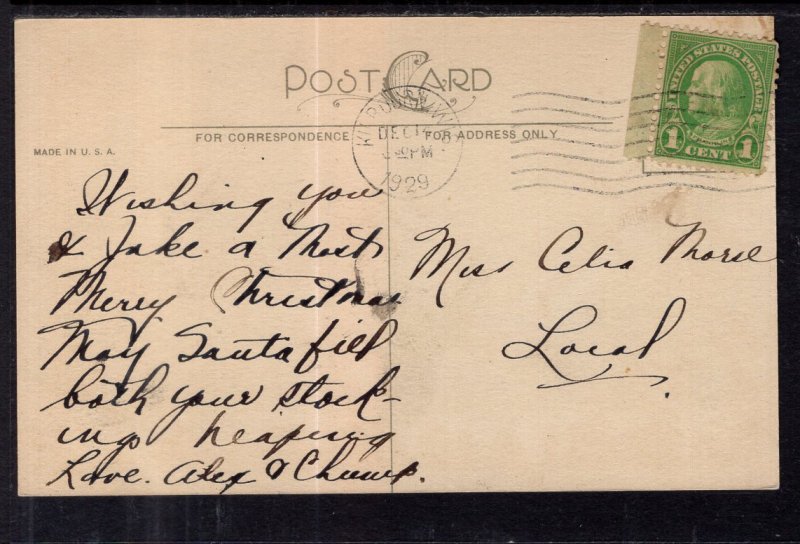 POST CARD
FOR CORRESPONDENCE
FOR ADDRESS ONLY
MADE IN U. S. A.
DEC
PM
1929
UNITED STATES POSTAGE
FRANKLIN
1 CENT 1
Wishing you
& Jake a Most
Merry Christmas
May Santa fill
both your stock-
ings heaping
Love. Alex & Chump.
Miss Celia Morse
Local.